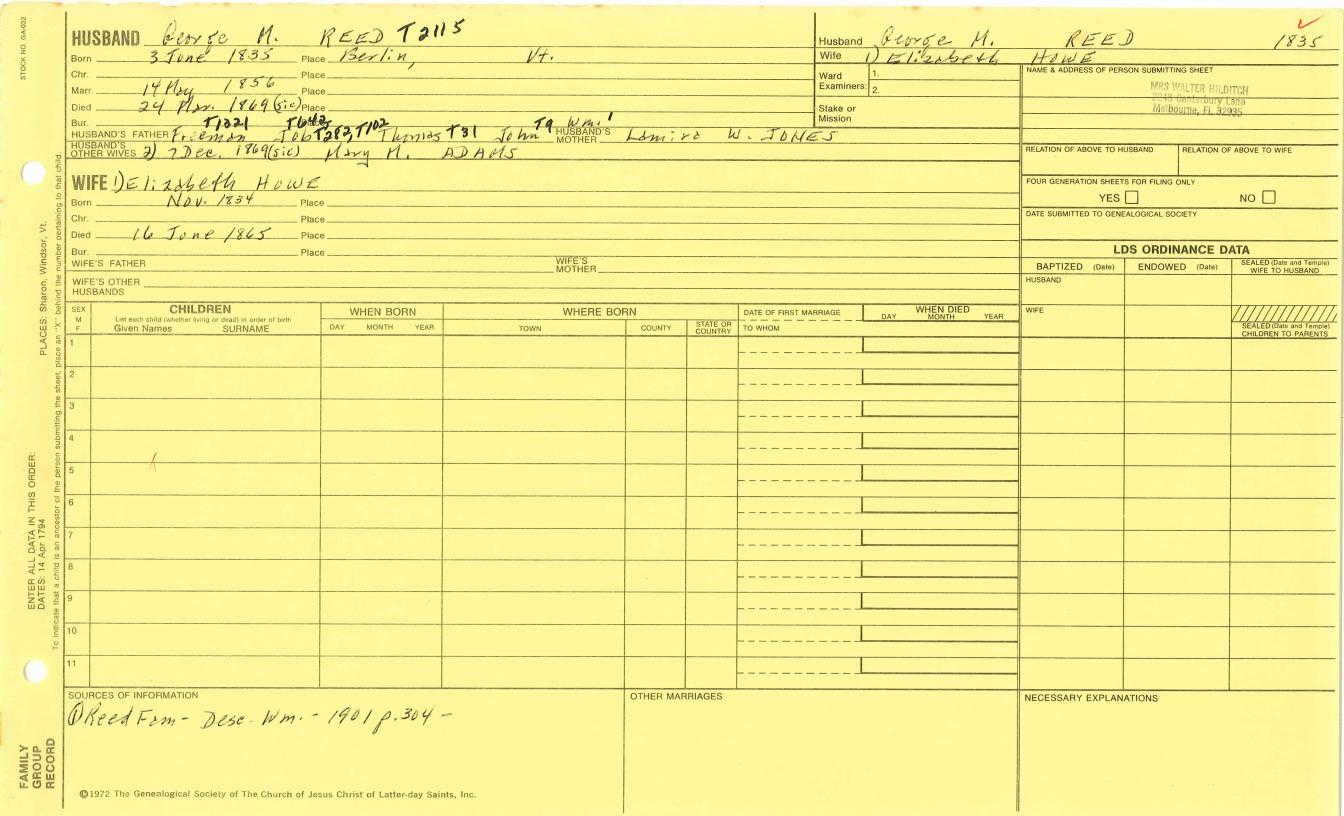 STOCK NO. GA-002
HUSBAND George M. REED T2115
Born 3 June 1835 Place Berlin, Vt.
Chr. Place
Marr. 14 May 1856 Place
Died 24 Mar. 1869 (sic) Place
Bur. Place
T1321 T642 T282, T102 T31 T9
HUSBAND'S FATHER Freeman Job Thomas John Wm.1 HUSBAND'S MOTHER Lamira W. JONES
HUSBAND'S OTHER WIVES 2) 7 Dec. 1869 (sic) Mary M. ADAMS
WIFE 1) Elizabeth HOWE
Born Nov. 1834 Place
Chr. Place
Died 16 June 1865 Place
Bur. Place
WIFE'S FATHER WIFE'S MOTHER
WIFE'S OTHER HUSBANDS
Husband George M. REED 1835
Wife 1) Elizabeth HOWE
Ward Examiners: 1. 2.
Stake or Mission
NAME & ADDRESS OF PERSON SUBMITTING SHEET
MRS WALTER HILDITCH
Canterbury Lane
Melbourne, FL 32935
RELATION OF ABOVE TO HUSBAND RELATION OF ABOVE TO WIFE
FOUR GENERATION SHEETS FOR FILING ONLY
YES NO
DATE SUBMITTED TO GENEALOGICAL SOCIETY
LDS ORDINANCE DATA
BAPTIZED (Date) ENDOWED (Date) SEALED (Date and Temple) WIFE TO HUSBAND
HUSBAND
WIFE
SEALED (Date and Temple) CHILDREN TO PARENTS
SEX M F
CHILDREN
List each child (whether living or dead) in order of birth
Given Names SURNAME
WHEN BORN
DAY MONTH YEAR
WHERE BORN
TOWN COUNTY STATE OR COUNTRY
DATE OF FIRST MARRIAGE
TO WHOM
WHEN DIED
DAY MONTH YEAR
1
2
3
4
5
6
7
8
9
10
11
SOURCES OF INFORMATION
① Reed Fam - Desc. Wm. - 1901 p. 304 -
OTHER MARRIAGES
NECESSARY EXPLANATIONS
©1972 The Genealogical Society of The Church of Jesus Christ of Latter-day Saints, Inc.
FAMILY GROUP RECORD
ENTER ALL DATA IN THIS ORDER:
DATES: 14 Apr 1794
PLACES: Sharon, Windsor, Vt.
To indicate that a child is an ancestor of the person submitting the sheet, place an "X" behind the number pertaining to that child.